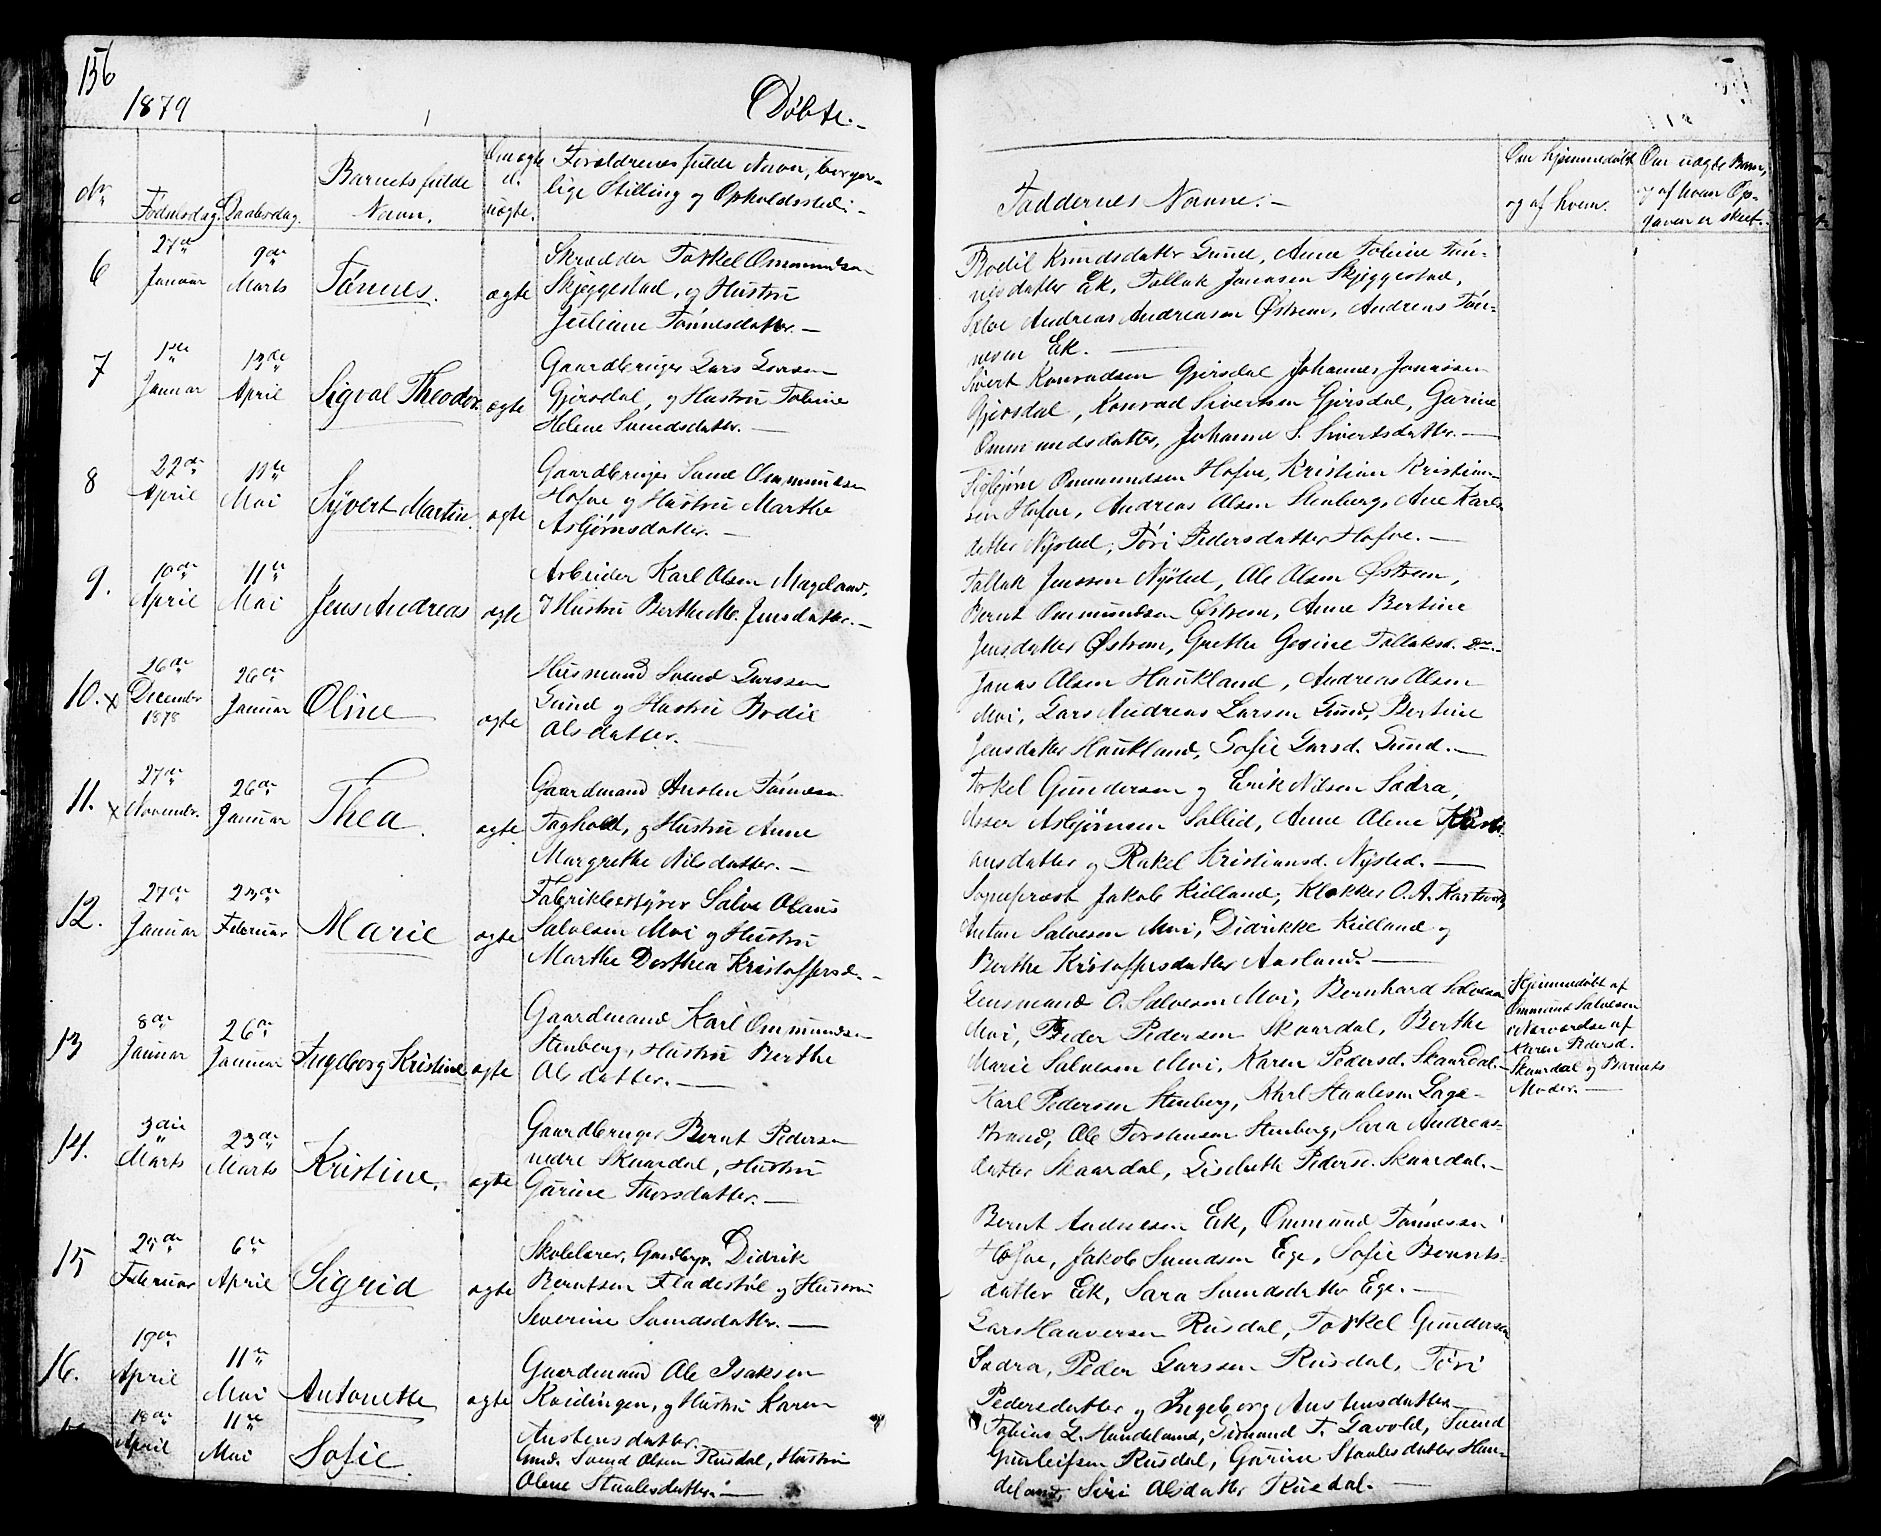 156
1879
Døbte.
No
Fødselsdag.
Daabsdag.
Barnets fulde
Navn.
Om ægte
el.
uægte.
Forældrenes fulde Navn, borger-
lige Stilling og Opholdssted.
Faddernes Navne.
Om hjemmedøbt
og af hvem.
Om uægte Barn,
og af hvem Op-
gaven er skeet.
6
27de
Januar
9de
Marts
Tønnes.
ægte
Skrædder Torkel Ommundsen
Skjeggestad, og Hustru
Juliane Tønnesdatter.
Bodil Knudsdatter Lund, Anne Tobine Tøn-
nesdatter Ek, Tallak Jonasen Skjeggestad,
Andreas Andreasen Østrem, Andreas Tøn-
nesen Ek.
7
1ste
Januar
13de
April
Sigval Theodor.
ægte
Gaardbruger Lars Larsen
Gjersdal, og Hustru Tobine
Helene Svendsdatter.
Sivert Konradsen Gjersdal, Johannes Jonassen
Gjersdal, Konrad Sivertsen Gjersdal, Gurine
Ommundsdatter, Johanne S. Sivertsdatter.
8
22de
April
11te
Mai
Syvert Martin.
ægte
Gaardbruger Svend Ommundsen
Hofve og Hustru Marthe
Asbjørnsdatter.
Ommundsen Hofve, Kristian Kristian-
sen Hofve, Andreas Olsen Stenberg, Ane Karls-
datter Nysted, Tøri Pedersdatter Hofve.
9.
10de
April
11te
Mai
Jens Andreas
ægte
Arbeider Karl Olsen Mageland,
& Hustru Berthe M. Jensdatter.
Tallak Jenssen Nysted, Ole Olsen Østrem,
Bernt Ommundsen Østrem, Anne Bertine
Jensdatter Østrem, Grethe Gesine Tallaksd.
10. x
26de
December
1878
26de
Januar
Oline
ægte
Husmand Svend Larssen
Lund og Hustru Bodil
Olsdatter.
Jonas Olsen Haukland, Andreas Olsen
Moi, Lars Andreas Larsen Lund, Bertine
Jensdatter Haukland, Sofie Larsd. Lund.
11. x
27de
Novembr.
26de
Januar
Thea.
ægte
Gaardmand Austen Tønnesen
Taghold, og Hustru Anne
Margrethe Nilsdatter.
Torkel Gundersen og Erik Nilsen Sadra,
Asser Asbjørnsen Sollid, Anne Olene Kristi-
ansdatter og Rakel Kristiansd. Nysted.
12.
27de
Januar
23de
Februar
Marie
ægte
Fabrikbestyrer Salve Olaus
Salvesen Moi og Hustru
Marthe Dorthea Kristoffersd.
Sogneprest Jakob Kielland, Klokker O. A.
Anton Salvesen Moi, Didrikke Kielland og
Berthe Kristoffersdatter Aasland.
13
8de
Januar
26de
Januar
Ingeborg Kristine
ægte
Gaardmand Karl Ommundsen
Stenberg, Hustru Berthe
Olsdatter.
Lensmand O. Salvesen Moi, Bernhard Salvesen
Moi, Peder Pedersen Skaardal, Berthe
Marie Salvesen Moi, Karen Pedersd. Skaardal.
Hjemmedøbt af
Ommund Salvesen
i Nærværelse af
Karen Pedersd.
Skaardal og Barnets
Moder.
14.
3die
Marts
23de
Marts
Kristine.
ægte
Gaardbruger Bernt Pedersen
nedre Skaardal, Hustru
Gurine Thorsdatter.
Karl Pedersen Stenberg, Karl Staalesen Lage-
strand, Ole Torstensen Stenberg, Sara Andreas-
datter Skaardal, Lisebeth Pedersd. Skaardal.
15
25de
Februar
6te
April
Sigrid
ægte
Skolelærer, Gaardbgr. Didrik
Berntsen Fladestøl og Hustru
Severine Svendsdatter.
Bernt Andreasen Ek, Ommund Tønnesen
Hofve, Jakob Svendsen Ege, Sofie Bernts-
datter Ek, Sara Svendsdatter Ege.
16.
19de
April
11te
Mai
Antonette
ægte
Gaardmand Ole Isaksen
Kvidingen, og Hustru Karen
Austensdatter.
Lars Haaversen Rusdal, Torkel Gundersen
Sadra, Peder Larssen Rusdal, Tøri
Pedersdatter og Ingeborg Austensdatter.
18de
April
11te
Mai
Sofie.
Gmd. Svend Olsen Rusdal, Hustru
Olene Staalesdatter.
Tobias L. Handeland, Sigmund T. Lavold, Svend
Gunleifsen Rusdal, Gurine Staalesdatter Han-
deland, Siri Olsdatter Rusdal.